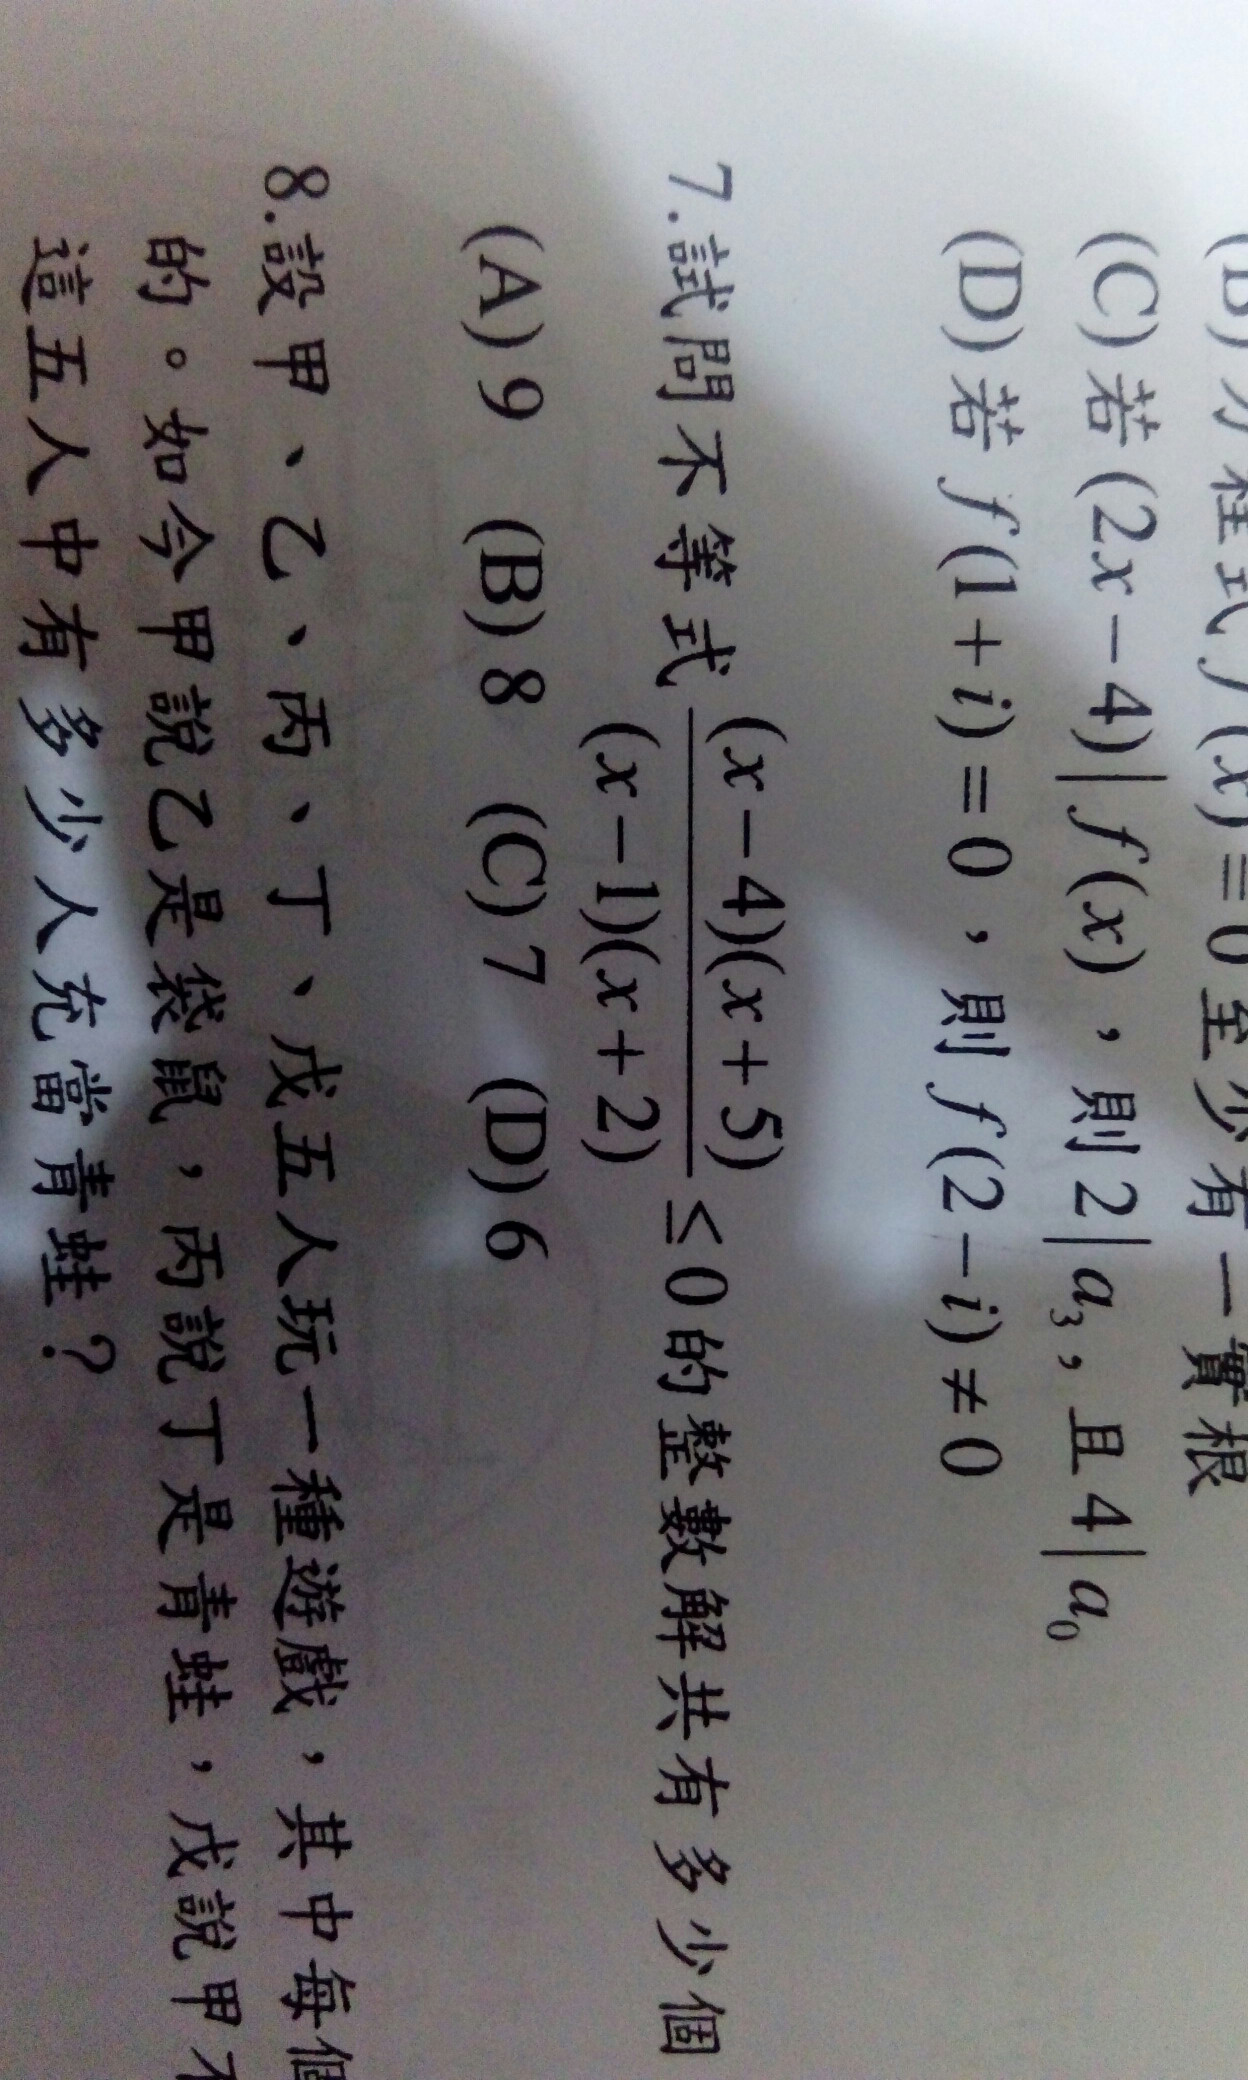 (B) 方程式 f(x) = 0 至少有一實根
(C) 若 (2x − 4) | f(x)，則 2 | a₃，且 4 | a₀
(D) 若 f(1 + i) = 0，則 f(2 − i) ≠ 0
7. 試問不等式 (x − 4)(x + 5) / (x − 1)(x + 2) ≤ 0 的整數解共有多少個
(A) 9 (B) 8 (C) 7 (D) 6
8. 設甲、乙、丙、丁、戊五人玩一種遊戲，其中每個
的。如今甲說乙是袋鼠，丙說丁是青蛙，戊說甲不
這五人中有多少人充當青蛙？